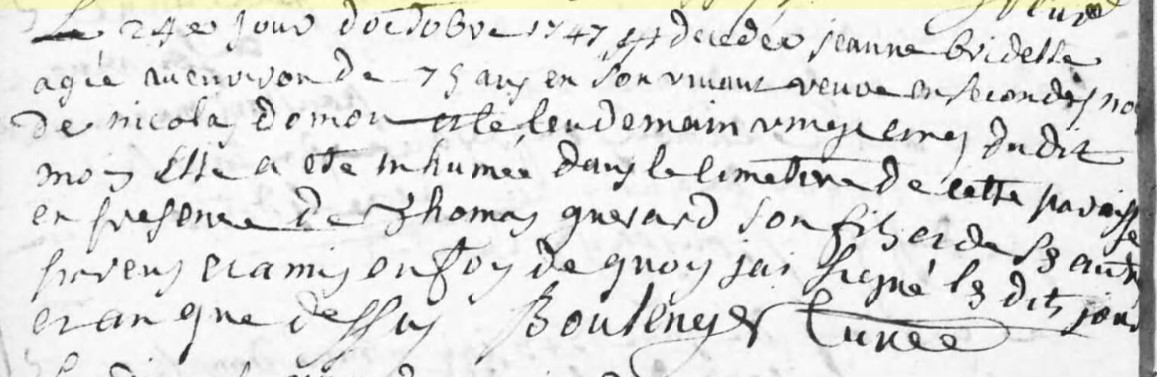 Le 24e jour doctobre 1747 est decedée jeanne bridelle
agée auenviron de 75 ans en son vivant veuve en secondes no
de nicolas domon et le lendemain vingt cinq dudit
mois Elle a ete inhumée dans le cimetiere de cette paroisse
en presence de Thomas guerard son fils et de ses autr
parens et amis en foy de quoy jai signé les dits jour
et an que dessus Boulenger Curée